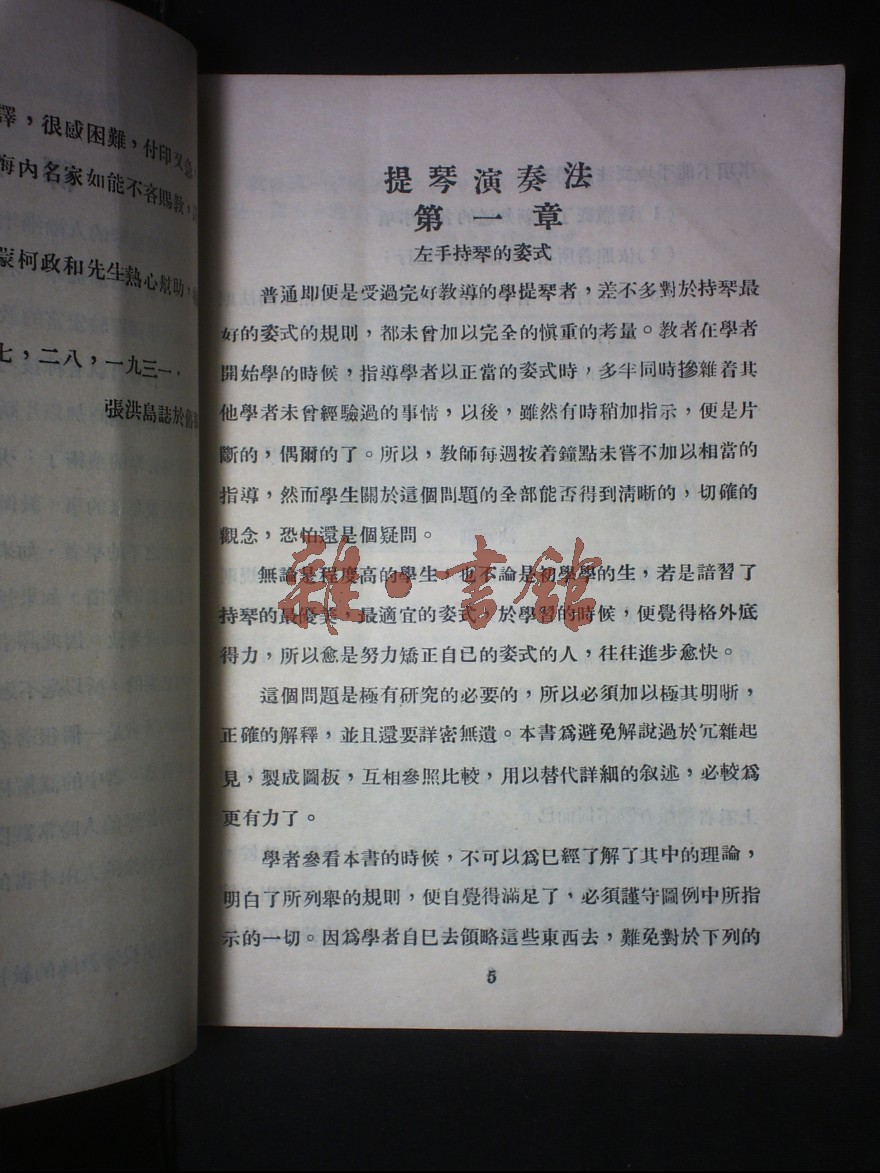 譯，很感困難，付印又急，
海內名家如能不吝賜教，
蒙柯政和先生熱心幫助，
七，二八，一九三一．
張洪島誌於舊
提琴演奏法
第一章
左手持琴的姿式
普通即便是受過完好教導的學提琴者，差不多對於持琴最
好的姿式的規則，都未曾加以完全的愼重的考量。教者在學者
開始學的時候，指導學者以正當的姿式時，多半同時摻雜着其
他學者未曾經驗過的事情，以後，雖然有時稍加指示，便是片
斷的，偶爾的了。所以，教師每週按着鐘點未嘗不加以相當的
指導，然而學生關於這個問題的全部能否得到清晰的，切確的
觀念，恐怕還是個疑問。
無論是程度高的學生，也不論是初學學的生，若是諳習了
持琴的最優美，最適宜的姿式，於學習的時候，便覺得格外底
得力，所以愈是努力矯正自已的姿式的人，往往進步愈快。
這個問題是極有研究的必要的，所以必須加以極其明晰，
正確的解釋，並且還要詳密無遺。本書爲避免解說過於冗雜起
見，製成圖板，互相參照比較，用以替代詳細的叙述，必較爲
更有力了。
學者參看本書的時候，不可以爲已經了解了其中的理論，
明白了所列舉的規則，便自覺得滿足了，必須謹守圖例中所指
示的一切。因爲學者自已去領略這些東西去，難免對於下列的
5
雜·書館